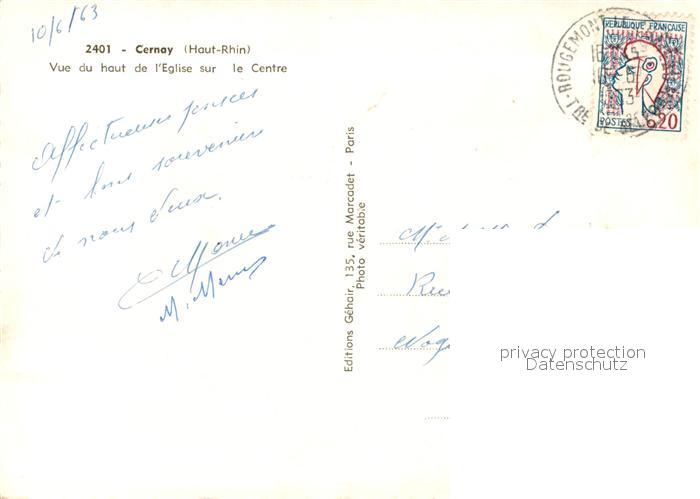 10/6/63
2401 - Cernay (Haut-Rhin)
Vue du haut de l'Eglise sur le Centre
Affectueuses pensées
et bons souvenirs
de nous deux.
Editions Géhair, 135, rue Marcadet - Paris
Photo véritable
REPUBLIQUE FRANÇAISE
POSTES 0,20
ROUGEMONT-LE-
TRE DE BELFORT
privacy protection
Datenschutz